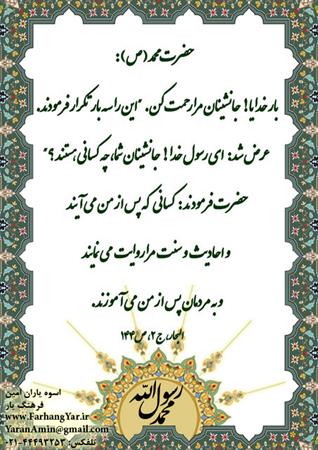 حضرت محمد (ص):
بار خدایا! جانشینان مرا رحمت کن. "این را سه بار تکرار فرمودند.
عرض شد: ای رسول خدا! جانشینان شما، چه کسانی هستند؟"
حضرت فرمودند: کسانی که پس از من می آیند
و احادیث و سنت مرا روایت می نمایند
و به مردمان پس از من می آموزند.
البحار، ج ۲، ص ۱۴۴
محمد رسول الله
اسوه یاران امین
فرهنگ یار
www.FarhangYar.ir
YaranAmin@gmail.com
تلفکس: ۴۴۴۹۳۲۵۳-۰۲۱